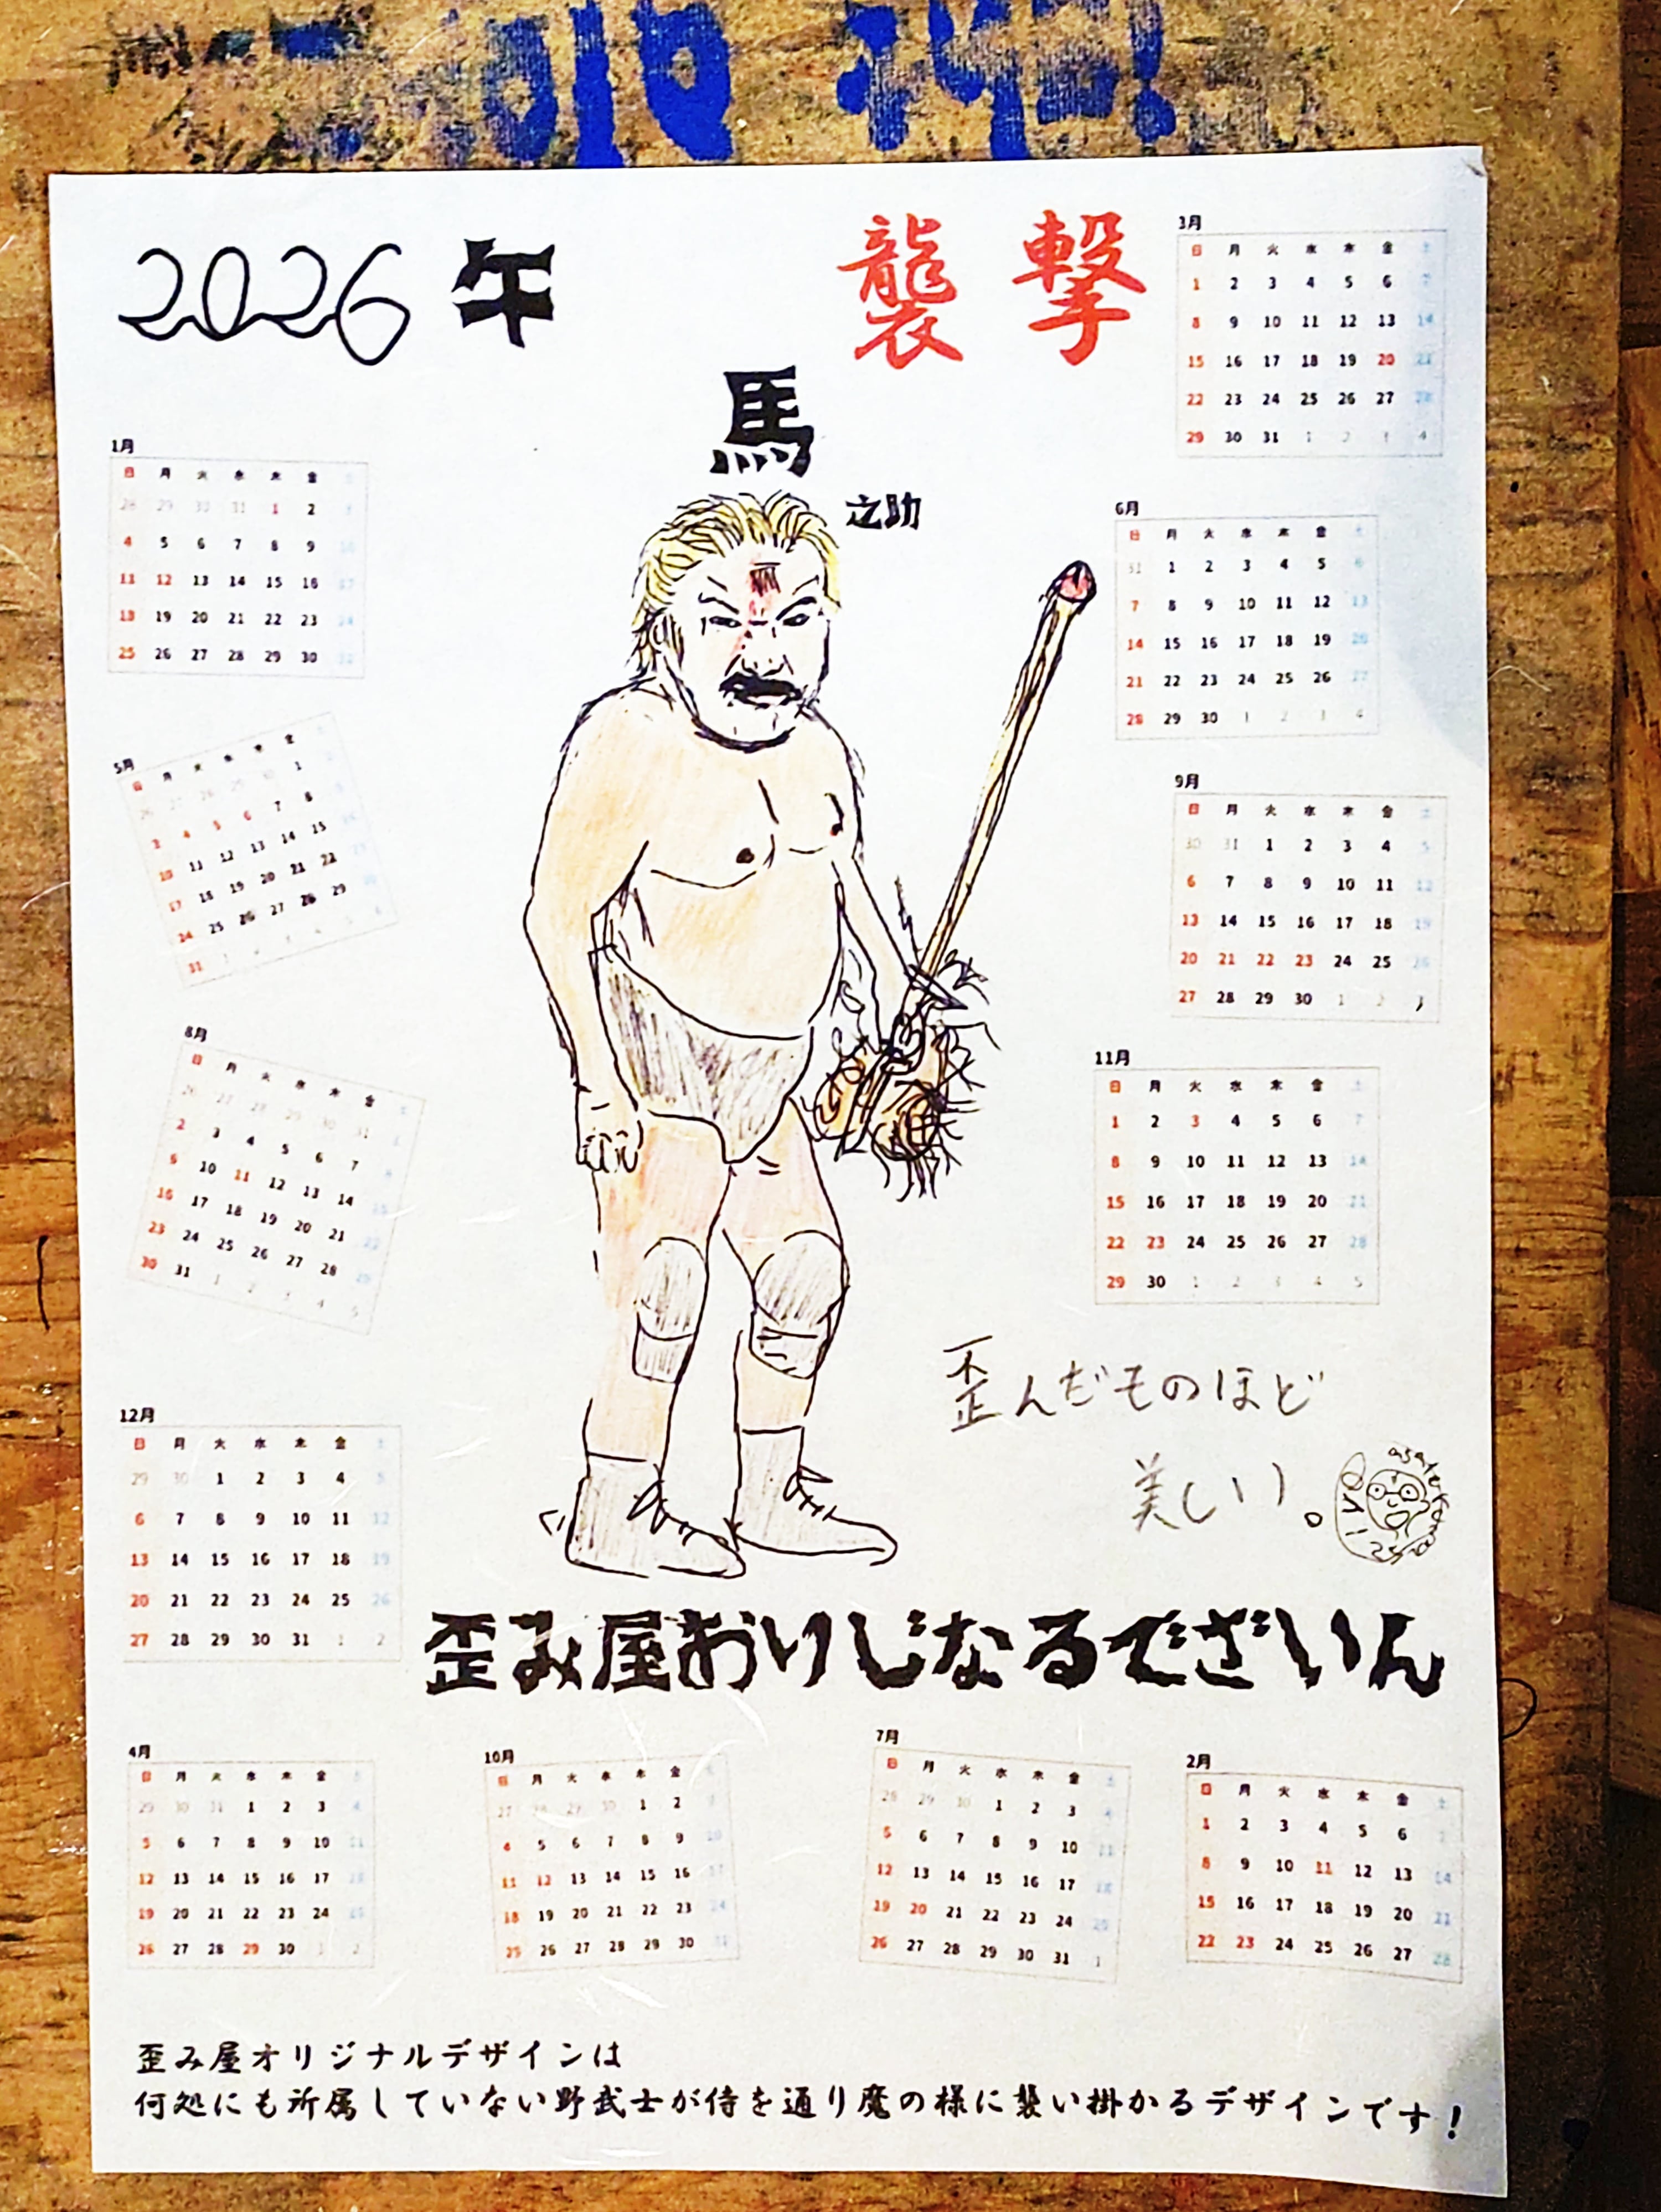 2026 午
襲撃
馬
之助
3月
日 月 火 水 木 金 土
1 2 3 4 5 6 7
8 9 10 11 12 13 14
15 16 17 18 19 20 21
22 23 24 25 26 27 28
29 30 31 1 2 3 4
1月
日 月 火 水 木 金 土
28 29 30 31 1 2 3
4 5 6 7 8 9 10
11 12 13 14 15 16 17
18 19 20 21 22 23 24
25 26 27 28 29 30 31
6月
日 月 火 水 木 金 土
31 1 2 3 4 5 6
7 8 9 10 11 12 13
14 15 16 17 18 19 20
21 22 23 24 25 26 27
28 29 30 1 2 3 4
5月
日 月 火 水 木 金 土
26 27 28 29 30 1 2
3 4 5 6 7 8 9
10 11 12 13 14 15 16
17 18 19 20 21 22 23
24 25 26 27 28 29 30
31 1 2 3 4 5 6
9月
日 月 火 水 木 金 土
30 31 1 2 3 4 5
6 7 8 9 10 11 12
13 14 15 16 17 18 19
20 21 22 23 24 25 26
27 28 29 30 1 2 3
8月
日 月 火 水 木 金 土
26 27 28 29 30 31 1
2 3 4 5 6 7 8
9 10 11 12 13 14 15
16 17 18 19 20 21 22
23 24 25 26 27 28 29
30 31 1 2 3 4 5
11月
日 月 火 水 木 金 土
1 2 3 4 5 6 7
8 9 10 11 12 13 14
15 16 17 18 19 20 21
22 23 24 25 26 27 28
29 30 1 2 3 4 5
歪んだものほど
美しい。
12月
日 月 火 水 木 金 土
29 30 1 2 3 4 5
6 7 8 9 10 11 12
13 14 15 16 17 18 19
20 21 22 23 24 25 26
27 28 29 30 31 1 2
歪み屋おりじなるでざいん
4月
日 月 火 水 木 金 土
29 30 31 1 2 3 4
5 6 7 8 9 10 11
12 13 14 15 16 17 18
19 20 21 22 23 24 25
26 27 28 29 30 1 2
10月
日 月 火 水 木 金 土
27 28 29 30 1 2 3
4 5 6 7 8 9 10
11 12 13 14 15 16 17
18 19 20 21 22 23 24
25 26 27 28 29 30 31
7月
日 月 火 水 木 金 土
28 29 30 1 2 3 4
5 6 7 8 9 10 11
12 13 14 15 16 17 18
19 20 21 22 23 24 25
26 27 28 29 30 31 1
2月
日 月 火 水 木 金 土
1 2 3 4 5 6 7
8 9 10 11 12 13 14
15 16 17 18 19 20 21
22 23 24 25 26 27 28
歪み屋オリジナルデザインは
何処にも所属していない野武士が侍を通り魔の様に襲い掛かるデザインです！